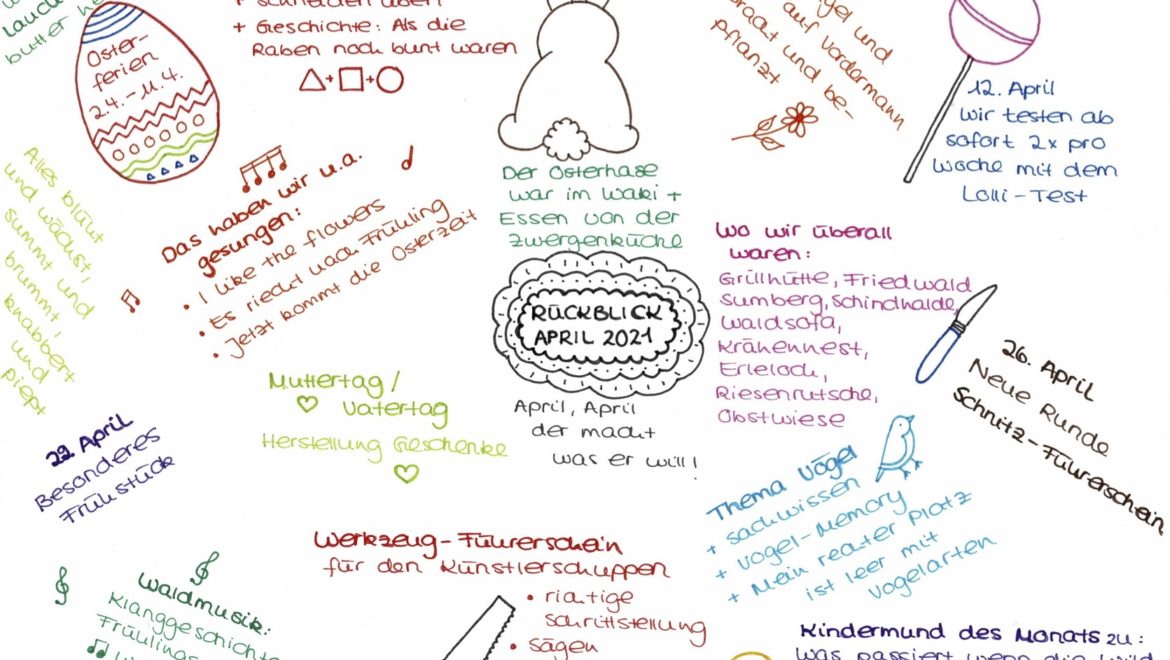 Lauch
butter
Oster-
ferien
2.4.-11.4.
+ schneiden üben
+ Geschichte: Als die
Raben noch bunt waren
und
auf Vordermann
und be-
pflanzt
12. April
wir testen ab
sofort 2x pro
Woche mit dem
Lolli-Test
Alles blüht
und wächst,
summt und
brummt,
knabbert
und
piept
Das haben wir u.a.
gesungen:
• I like the flowers
• Es riecht nach Frühling
• Jetzt kommt die Osterzeit
Der Osterhase
war im Waki +
Essen von der
Zwergenküche
RÜCKBLICK
APRIL 2021
April, April
der macht
was er will!
Wo wir überall
waren:
Grillhütte, Friedwald
Sumberg, Schindhalde,
Waldsofa,
Krähennest,
Erleloch,
Riesenrutsche,
Obstwiese
26. April
Neue Runde
Schnitz-Führerschein
Muttertag/
Vatertag
Herstellung Geschenke
22 April
Besonderes
Frühstück
Thema Vögel
+ Sachwissen
+ Vogel-Memory
+ Mein rechter Platz
ist leer mit
Vogelarten
Werkzeug-Führerschein
für den Künstlerschuppen
• richtige
Schrittstellung
• sägen
Waldmusik:
Klanggeschichte
Frühlings
Kindermund des Monats zu:
was passiert wenn die Wild